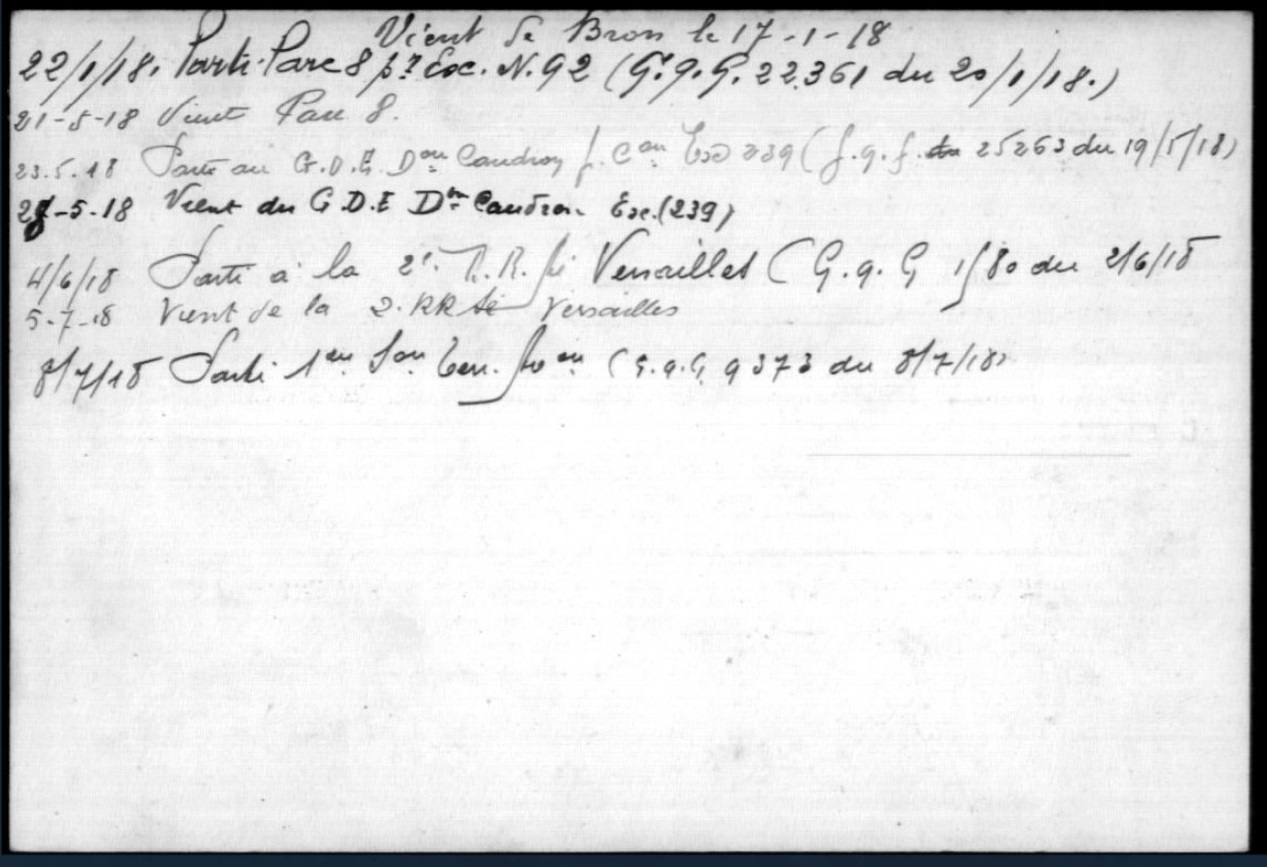 Vient de Bron le 17-1-18
22/1/18. Parti Parc 8 pr Esc. N. 92 (G.Q.G. 22.361 du 20/1/18.)
21-5-18 Vient Parc 8.
23.5.18 Parti au G.D.E. Don Caudron Esc 239 (G.Q.G. 25263 du 19/5/18)
-5-18 Vient du G.D.E Don Caudron Esc. (239)
4/6/18 Parti à la 2e R.R. Versailles (G.Q.G 1/80 du 2/6/18
5-7-18 Vient de la 2. RR Versailles
8/7/18 Parti 1er (G.Q.G 9373 du 8/7/18)